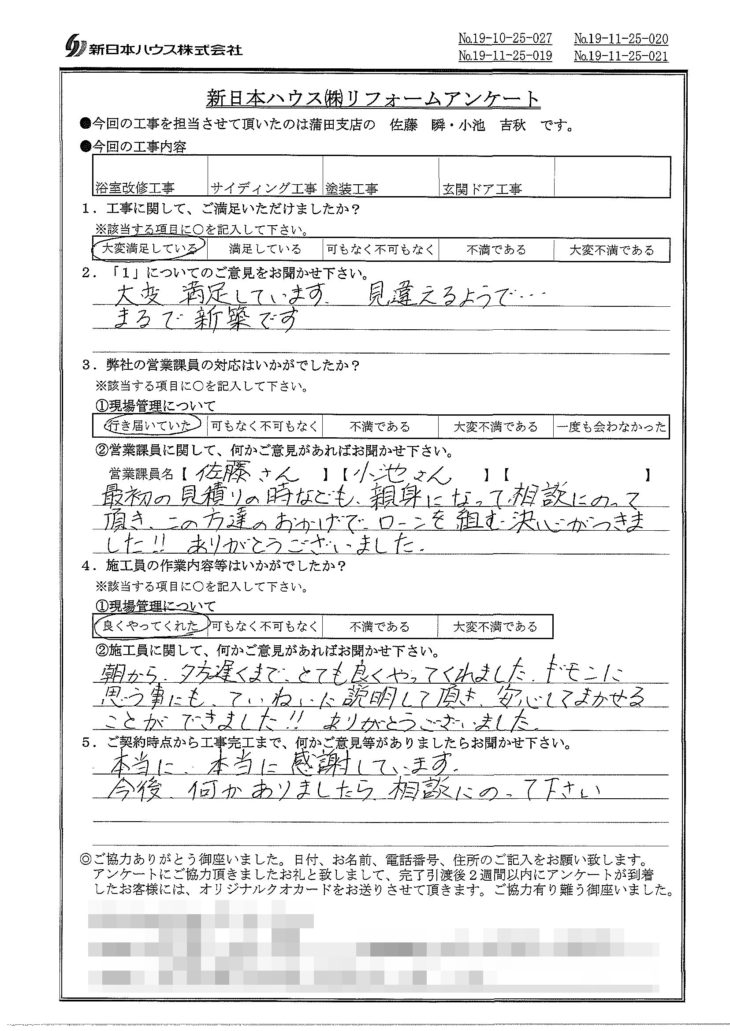 新日本ハウス株式会社
№19-10-25-027 №19-11-25-020
№19-11-25-019 №19-11-25-021
新日本ハウス㈱リフォームアンケート
●今回の工事を担当させて頂いたのは蒲田支店の 佐藤 瞬・小池 吉秋 です。
●今回の工事内容
浴室改修工事 サイディング工事 塗装工事 玄関ドア工事
1．工事に関して、ご満足いただけましたか？
※該当する項目に〇を記入して下さい。
大変満足している 満足している 可もなく不可もなく 不満である 大変不満である
2．「1」についてのご意見をお聞かせ下さい。
大変 満足しています 見違えるようで…
まるで新築です
3．弊社の営業課員の対応はいかがでしたか？
※該当する項目に〇を記入して下さい。
①現場管理について
行き届いていた 可もなく不可もなく 不満である 大変不満である 一度も会わなかった
②営業課員に関して、何かご意見があればお聞かせ下さい。
営業課員名【 佐藤さん 】【 小池さん 】【 】
最初の見積りの時なども、親身になって、相談にのって
頂き、この方達のおかげで、ローンを組む決心がつきま
した!! ありがとうございました。
4．施工員の作業内容等はいかがでしたか？
※該当する項目に〇を記入して下さい。
①現場管理について
良くやってくれた 可もなく不可もなく 不満である 大変不満である
②施工員に関して、何かご意見があればお聞かせ下さい。
朝から、夕方遅くまで、とても良くやってくれました、ギモンに
思う事にも、ていねいに説明して頂き、安心してまかせる
ことが できました!! ありがとうございました。
5．ご契約時点から工事完工まで、何かご意見等がありましたらお聞かせ下さい。
本当に、本当に感謝しています。
今後、何かありましたら、相談にのって下さい
◎ご協力ありがとう御座いました。日付、お名前、電話番号、住所のご記入をお願い致します。
アンケートにご協力頂きましたお礼と致しまして、完了引渡後2週間以内にアンケートが到着
したお客様には、オリジナルクオカードをお送りさせて頂きます。ご協力有り難う御座いました。